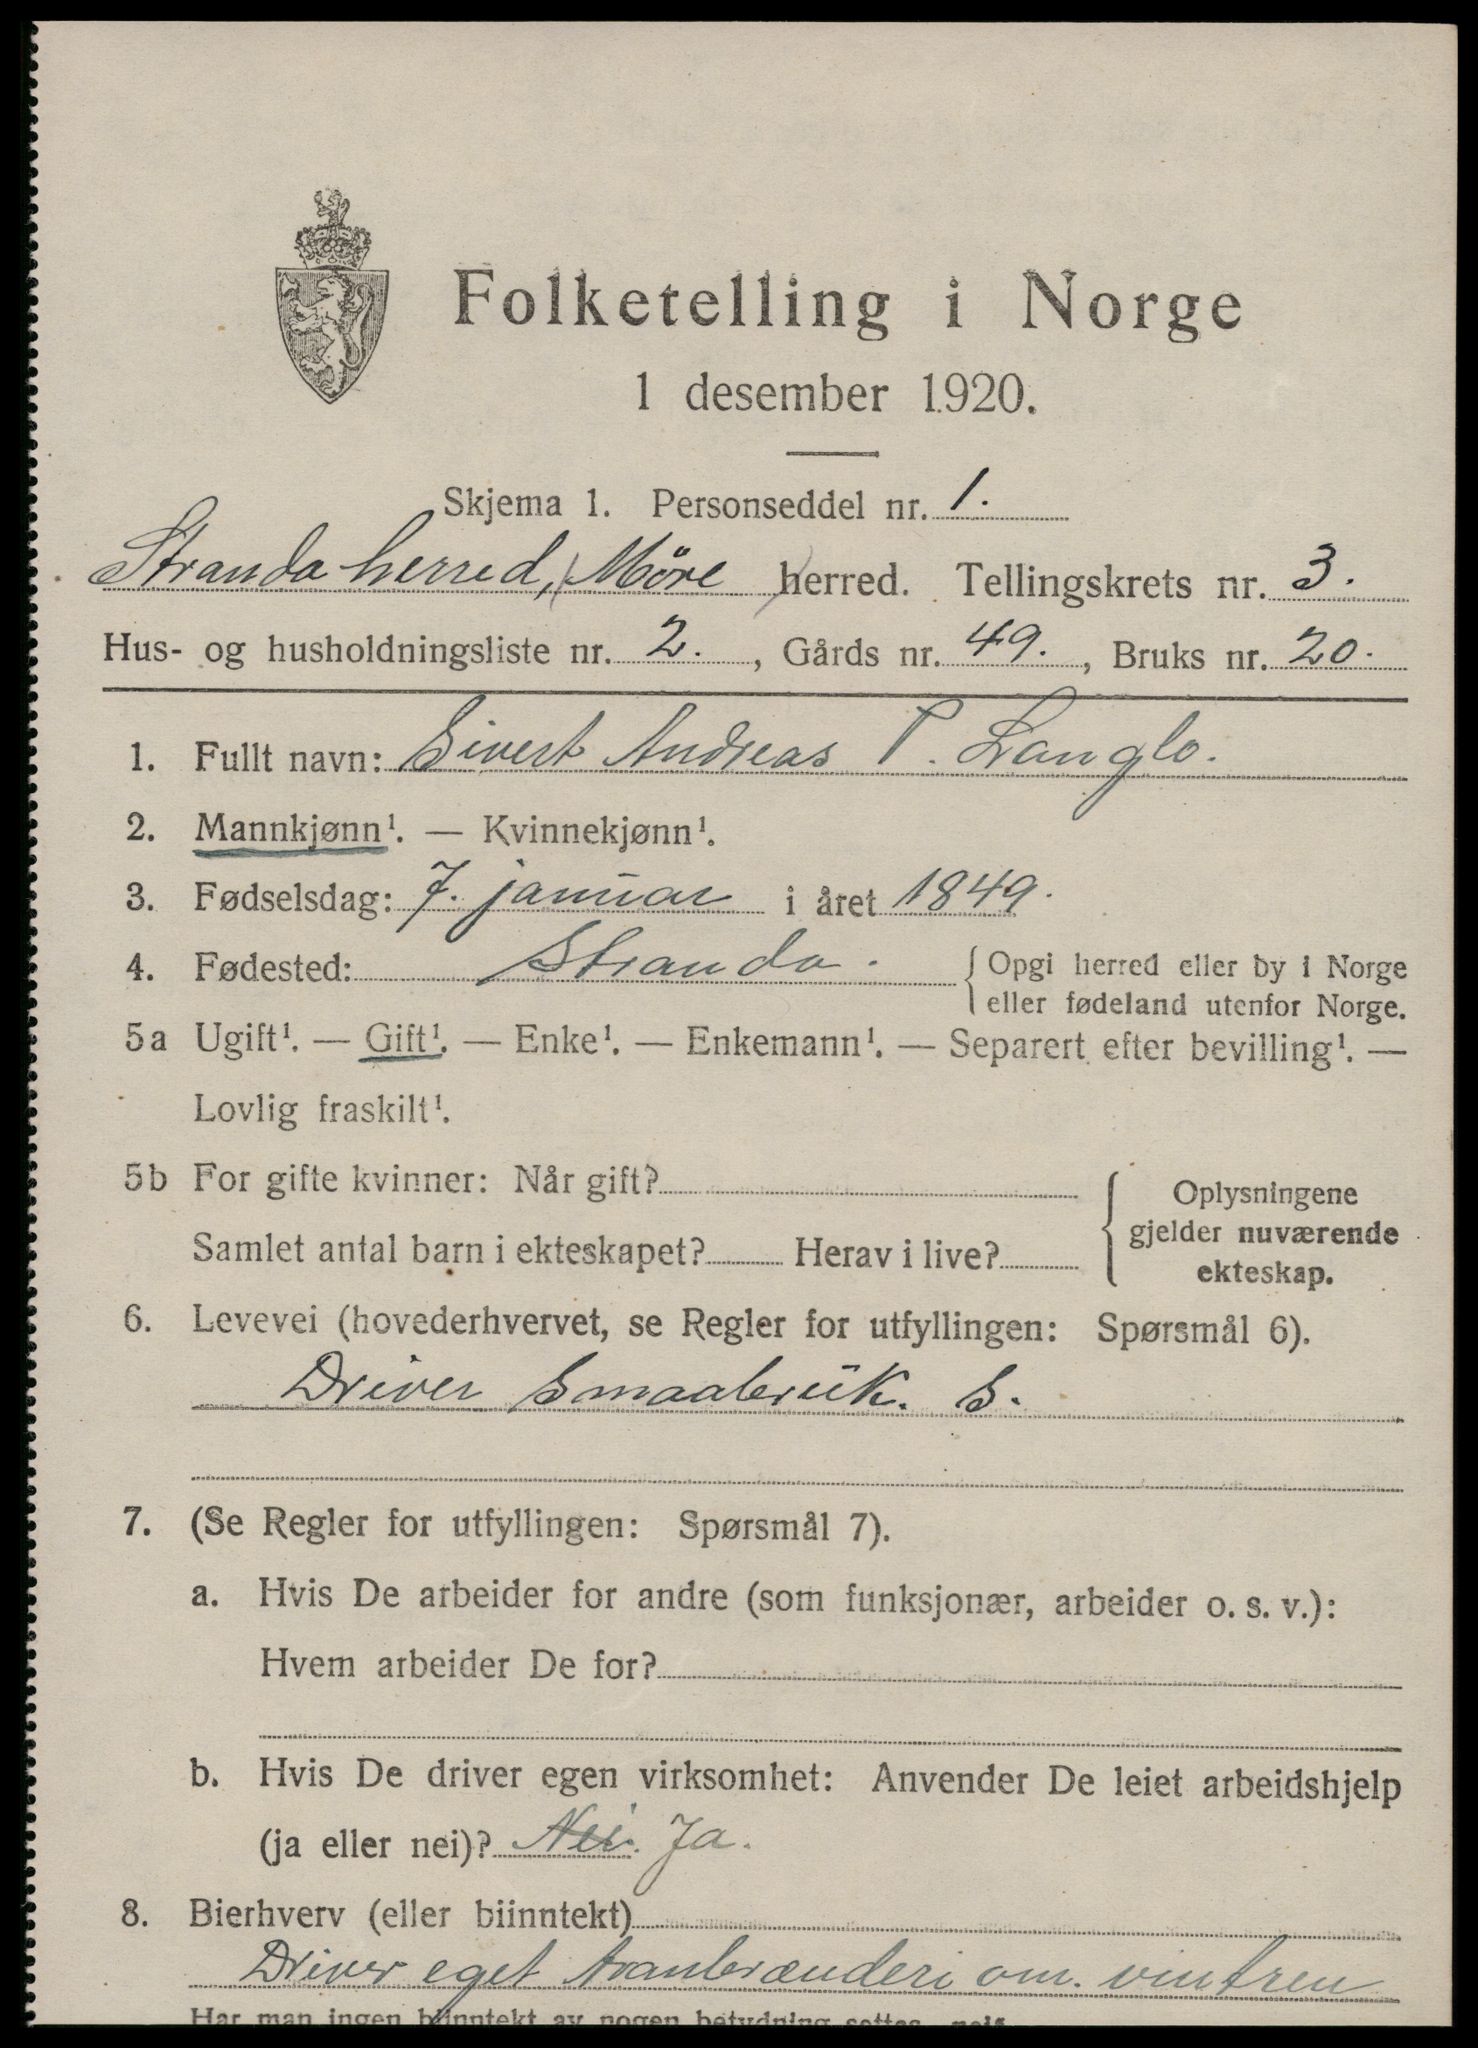 Folketelling i Norge
1 desember 1920.
Skjema 1. Personseddel nr. 1.
Stranda herred, Möre herred. Tellingskrets nr. 3.
Hus- og husholdningsliste nr. 2., Gårds nr. 49., Bruks nr. 20.
1. Fullt navn: Sivert Andreas P. Langlo.
2. Mannkjønn¹. — Kvinnekjønn¹.
3. Fødselsdag: 7. januar i året 1849.
4. Fødested: Stranda. { Opgi herred eller by i Norge
eller fødeland utenfor Norge.
5a Ugift¹. — Gift¹. — Enke¹. — Enkemann¹. — Separert efter bevilling¹. —
Lovlig fraskilt¹.
5b For gifte kvinner: Når gift?
Samlet antal barn i ekteskapet? Herav i live?
{ Oplysningene
gjelder nuværende
ekteskap.
6. Levevei (hovederhvervet, se Regler for utfyllingen: Spørsmål 6).
Driver Smaabruk. S.
7. (Se Regler for utfyllingen: Spørsmål 7).
a. Hvis De arbeider for andre (som funksjonær, arbeider o. s. v.):
Hvem arbeider De for?
b. Hvis De driver egen virksomhet: Anvender De leiet arbeidshjelp
(ja eller nei)? Nei. Ja.
8. Bierhverv (eller biinntekt)
Driver eget tranbrænderi om. vintren
Har man ingen biinntekt av nogen betydning settes nei